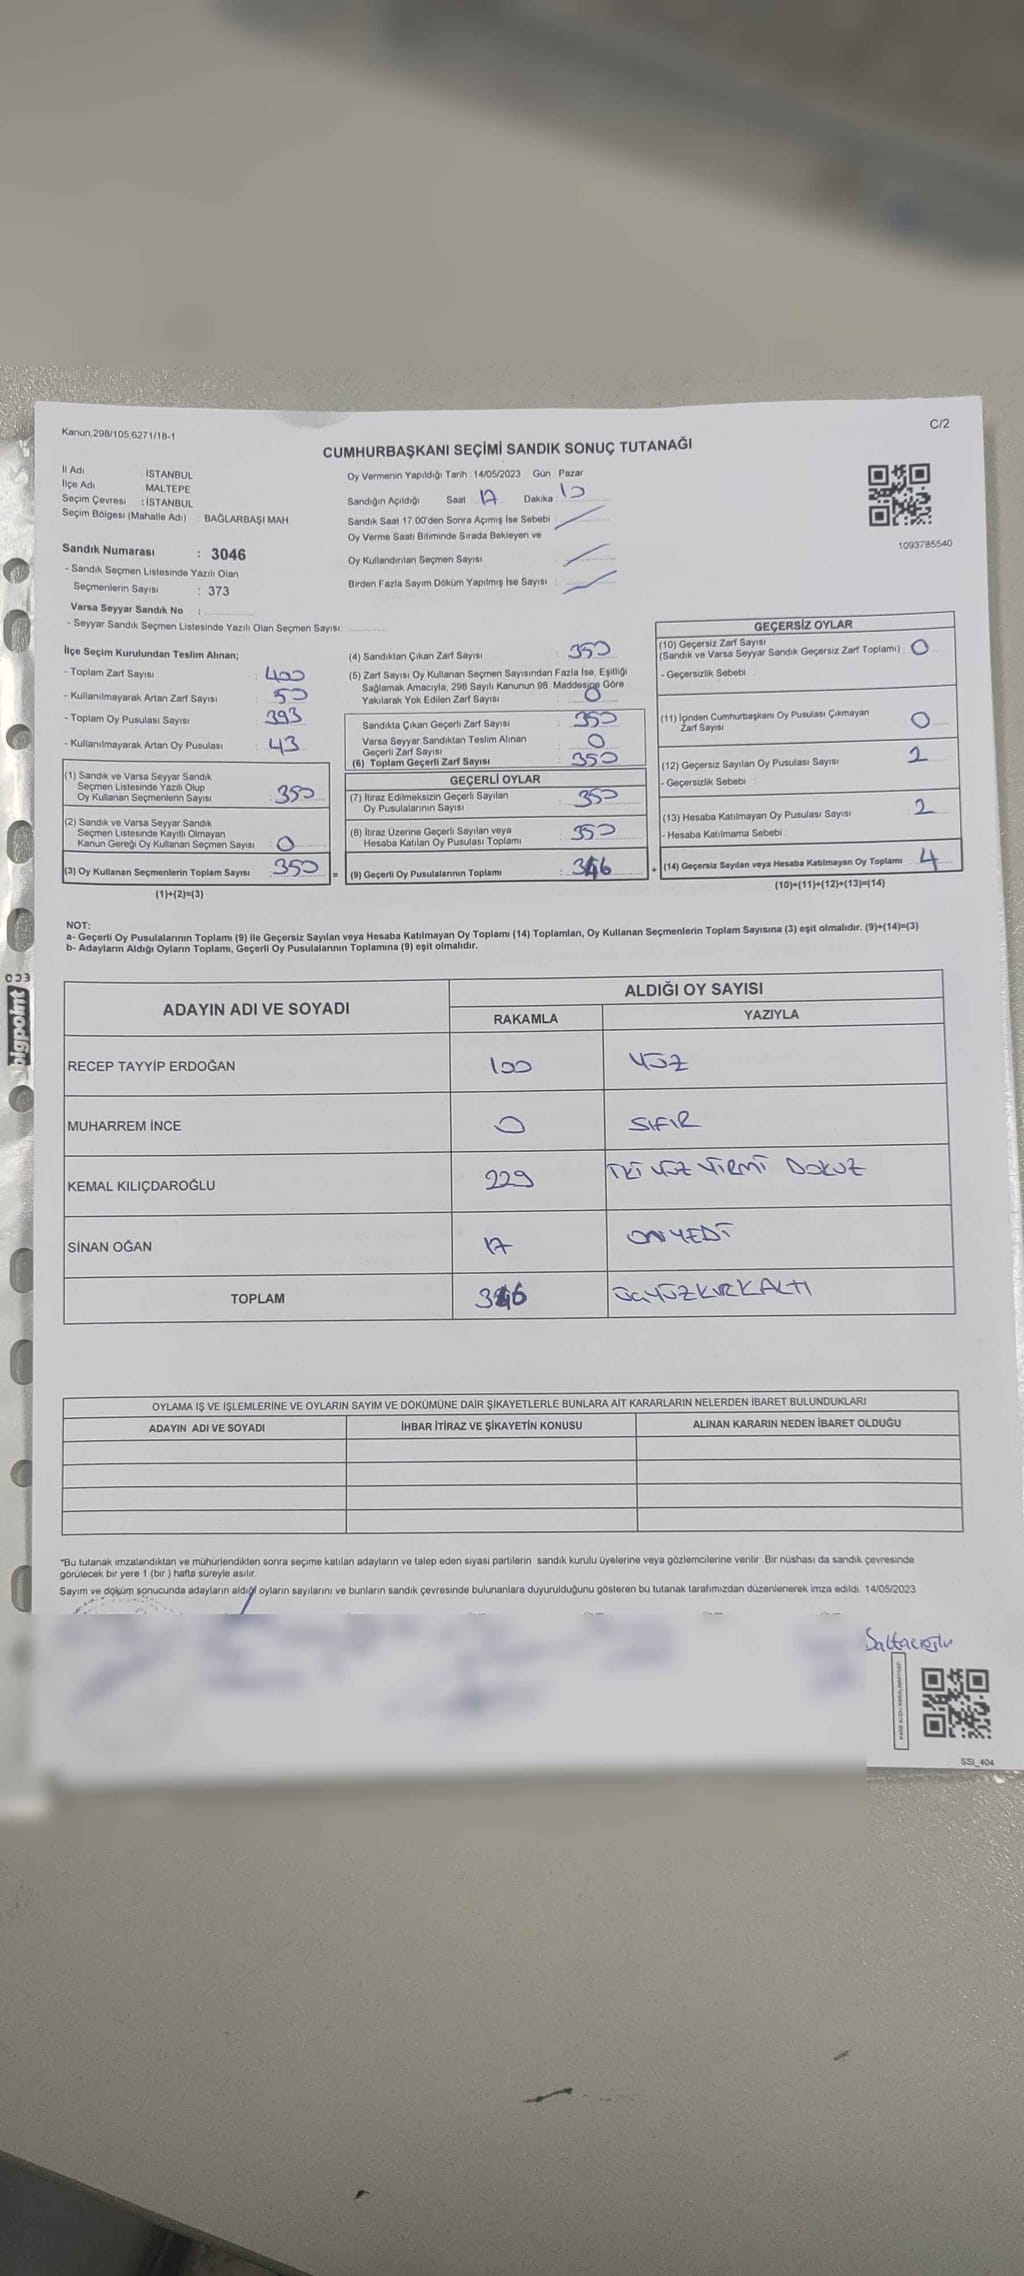 Kanun,298/105,6271/18-1
C/2
CUMHURBAŞKANI SEÇİMİ SANDIK SONUÇ TUTANAĞI
İl Adı İSTANBUL
İlçe Adı MALTEPE
Seçim Çevresi : İSTANBUL
Seçim Bölgesi (Mahalle Adı) BAĞLARBAŞI MAH.
Sandık Numarası : 3046
- Sandık Seçmen Listesinde Yazılı Olan
Seçmenlerin Sayısı : 373
Varsa Seyyar Sandık No :
- Seyyar Sandık Seçmen Listesinde Yazılı Olan Seçmen Sayısı:
Oy Vermenin Yapıldığı Tarih : 14/05/2023 Gün : Pazar
Sandığın Açıldığı Saat : 17 Dakika : 10
Sandık Saat 17.00'den Sonra Açımış İse Sebebi :
Oy Verme Saati Bitiminde Sırada Bekleyen ve
Oy Kullandırılan Seçmen Sayısı
Birden Fazla Sayım Döküm Yapılmış İse Sayısı :
1093785540
İlçe Seçim Kurulundan Teslim Alınan;
- Toplam Zarf Sayısı : 400
- Kullanılmayarak Artan Zarf Sayısı : 50
- Toplam Oy Pusulası Sayısı : 393
- Kullanılmayarak Artan Oy Pusulası : 43
(1) Sandık ve Varsa Seyyar Sandık
Seçmen Listesinde Yazılı Olup
Oy Kullanan Seçmenlerin Sayısı : 350
(2) Sandık ve Varsa Seyyar Sandık
Seçmen Listesinde Kayıtlı Olmayan
Kanun Gereği Oy Kullanan Seçmen Sayısı : 0
(3) Oy Kullanan Seçmenlerin Toplam Sayısı : 350
(1)+(2)=(3)
(4) Sandıktan Çıkan Zarf Sayısı : 350
(5) Zarf Sayısı Oy Kullanan Seçmen Sayısından Fazla İse, Eşitliği
Sağlamak Amacıyla, 298 Sayılı Kanunun 98. Maddesine Göre
Yakılarak Yok Edilen Zarf Sayısı : 0
Sandıkta Çıkan Geçerli Zarf Sayısı : 350
Varsa Seyyar Sandıktan Teslim Alınan
Geçerli Zarf Sayısı : 0
(6) Toplam Geçerli Zarf Sayısı : 350
GEÇERLİ OYLAR
(7) İtiraz Edilmeksizin Geçerli Sayılan
Oy Pusulalarının Sayısı : 350
(8) İtiraz Üzerine Geçerli Sayılan veya
Hesaba Katılan Oy Pusulası Toplamı : 350
= (9) Geçerli Oy Pusulalarının Toplamı : 346
GEÇERSİZ OYLAR
(10) Geçersiz Zarf Sayısı
(Sandık ve Varsa Seyyar Sandık Geçersiz Zarf Toplamı) : 0
- Geçersizlik Sebebi :
(11) İçinden Cumhurbaşkanı Oy Pusulası Çıkmayan
Zarf Sayısı : 0
(12) Geçersiz Sayılan Oy Pusulası Sayısı : 2
- Geçersizlik Sebebi :
(13) Hesaba Katılmayan Oy Pusulası Sayısı : 2
- Hesaba Katılmama Sebebi :
+ (14) Geçersiz Sayılan veya Hesaba Katılmayan Oy Toplamı : 4
(10)+(11)+(12)+(13)=(14)
NOT:
a- Geçerli Oy Pusulalarının Toplamı (9) ile Geçersiz Sayılan veya Hesaba Katılmayan Oy Toplamı (14) Toplamları, Oy Kullanan Seçmenlerin Toplam Sayısına (3) eşit olmalıdır. (9)+(14)=(3)
b- Adayların Aldığı Oyların Toplamı, Geçerli Oy Pusulalarının Toplamına (9) eşit olmalıdır.
bigpoint
ADAYIN ADI VE SOYADI ALDIĞI OY SAYISI
RAKAMLA YAZIYLA
RECEP TAYYİP ERDOĞAN 100 YÜZ
MUHARREM İNCE 0 SIFIR
KEMAL KILIÇDAROĞLU 229 İKİ YÜZ YİRMİ DOKUZ
SİNAN OĞAN 17 ONYEDİ
TOPLAM 346 ÜÇYÜZKIRKALTI
OYLAMA İŞ VE İŞLEMLERİNE VE OYLARIN SAYIM VE DÖKÜMÜNE DAİR ŞİKAYETLERLE BUNLARA AİT KARARLARIN NELERDEN İBARET BULUNDUKLARI
ADAYIN ADI VE SOYADI İHBAR İTİRAZ VE ŞİKAYETİN KONUSU ALINAN KARARIN NEDEN İBARET OLDUĞU
*Bu tutanak imzalandıktan ve mühürlendikten sonra seçime katılan adayların ve talep eden siyasi partilerin sandık kurulu üyelerine veya gözlemcilerine verilir. Bir nüshası da sandık çevresinde
görülecek bir yere 1 (bir ) hafta süreyle asılır.
Sayım ve döküm sonucunda adayların aldığı oyların sayılarını ve bunların sandık çevresinde bulunanlara duyurulduğunu gösteren bu tutanak tarafımızdan düzenlenerek imza edildi. 14/05/2023
Saltacıoğlu
SSI_404